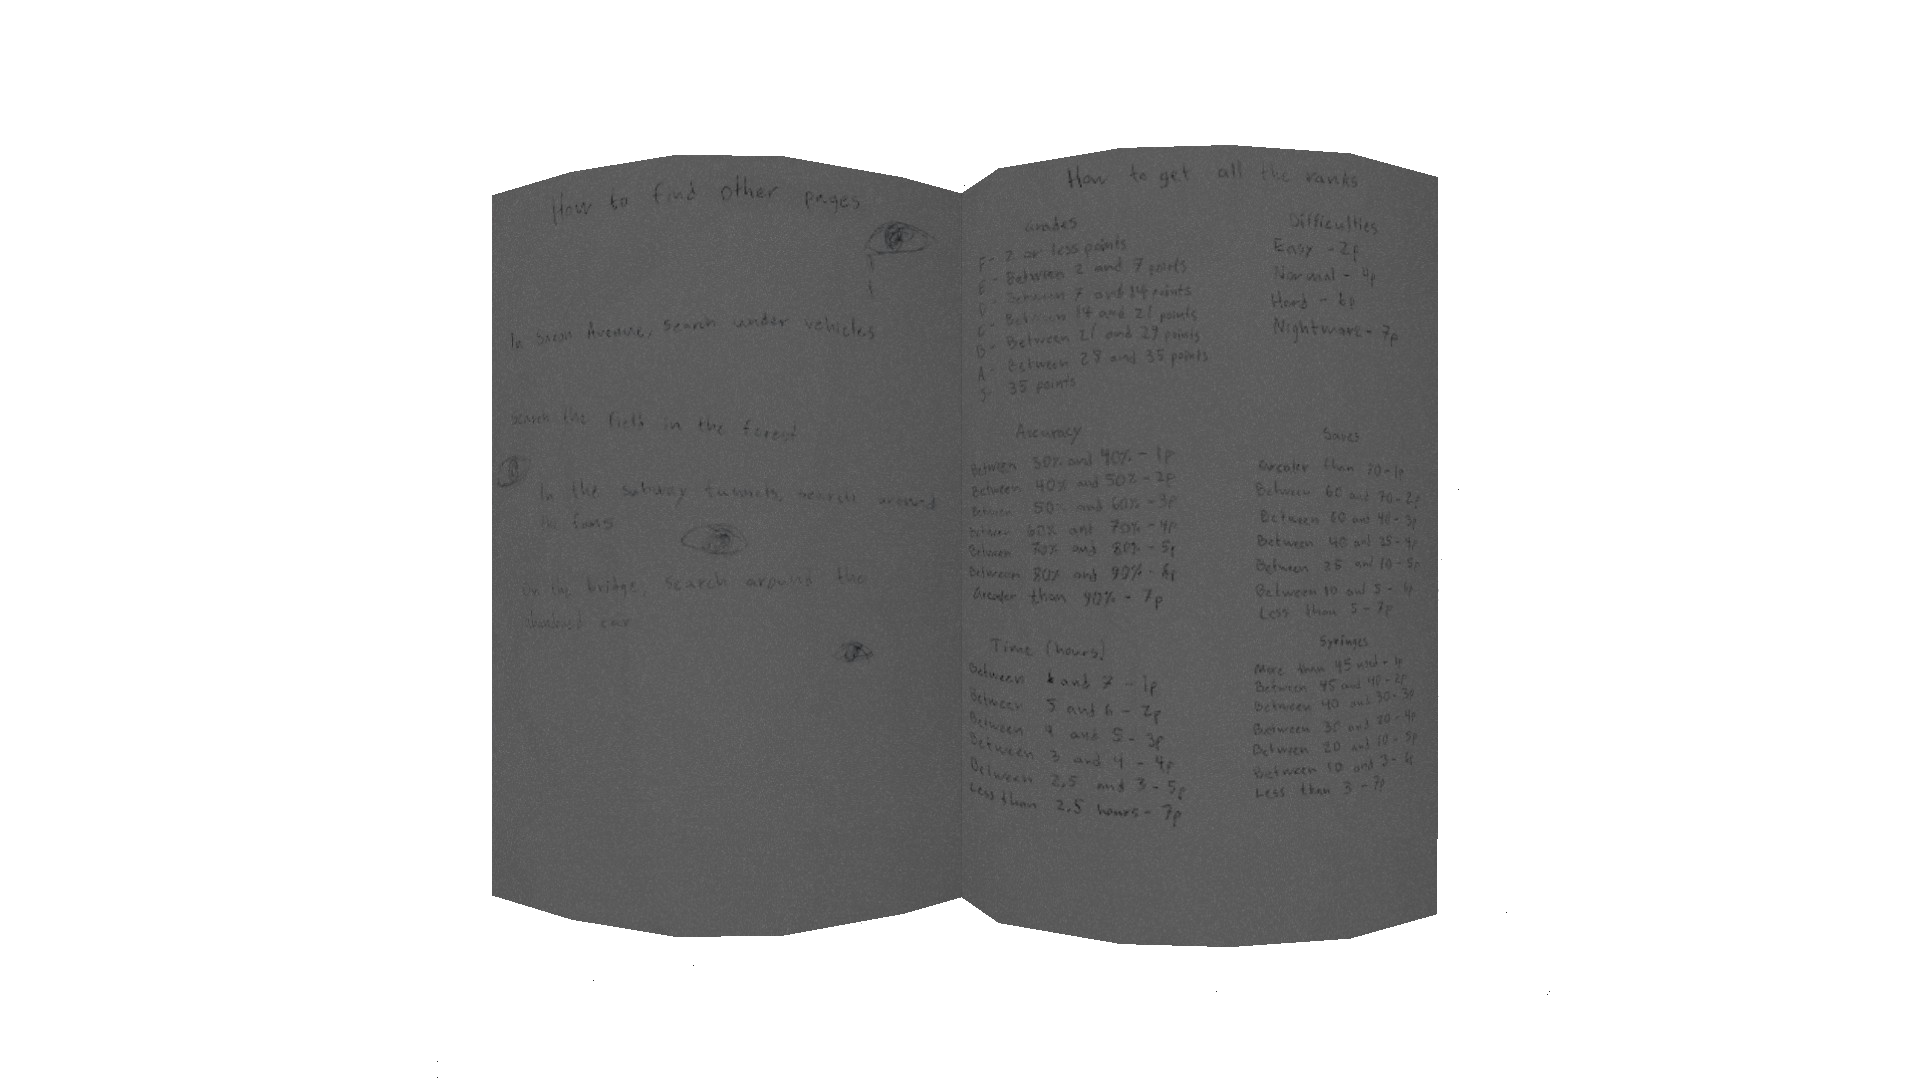 How to find other pages
In Saxon Avenue, search under vehicles
Search the field in the forest
In the subway tunnels, search around
the fans
On the bridge, search around the
abandoned car
How to get all the ranks
Grades
F - 2 or less points
E - Between 2 and 7 points
D - Between 7 and 14 points
C - Between 14 and 21 points
B - Between 21 and 29 points
A - Between 28 and 35 points
S - 35 points
Difficulties
Easy - 2p
Normal - 4p
Hard - 6p
Nightmare - 7p
Accuracy
Between 30% and 40% - 1p
Between 40% and 50% - 2p
Between 50% and 60% - 3p
Between 60% and 70% - 4p
Between 70% and 80% - 5p
Between 80% and 90% - 6p
Greater than 90% - 7p
Saves
Greater than 70 - 1p
Between 60 and 70 - 2p
Between 60 and 40 - 3p
Between 40 and 25 - 4p
Between 25 and 10 - 5p
Between 10 and 5 - 6p
Less than 5 - 7p
Time (hours)
Between and 7 - 1p
Between 5 and 6 - 2p
Between 4 and 5 - 3p
Between 3 and 4 - 4p
Between 2,5 and 3 - 5p
Less than 2,5 hours - 7p
Syringes
More than 45 used - 1p
Between 45 and 40 - 2p
Between 40 and 30 - 3p
Between 30 and 20 - 4p
Between 20 and 10 - 5p
Between 10 and 3 - 6p
Less than 3 - 7p